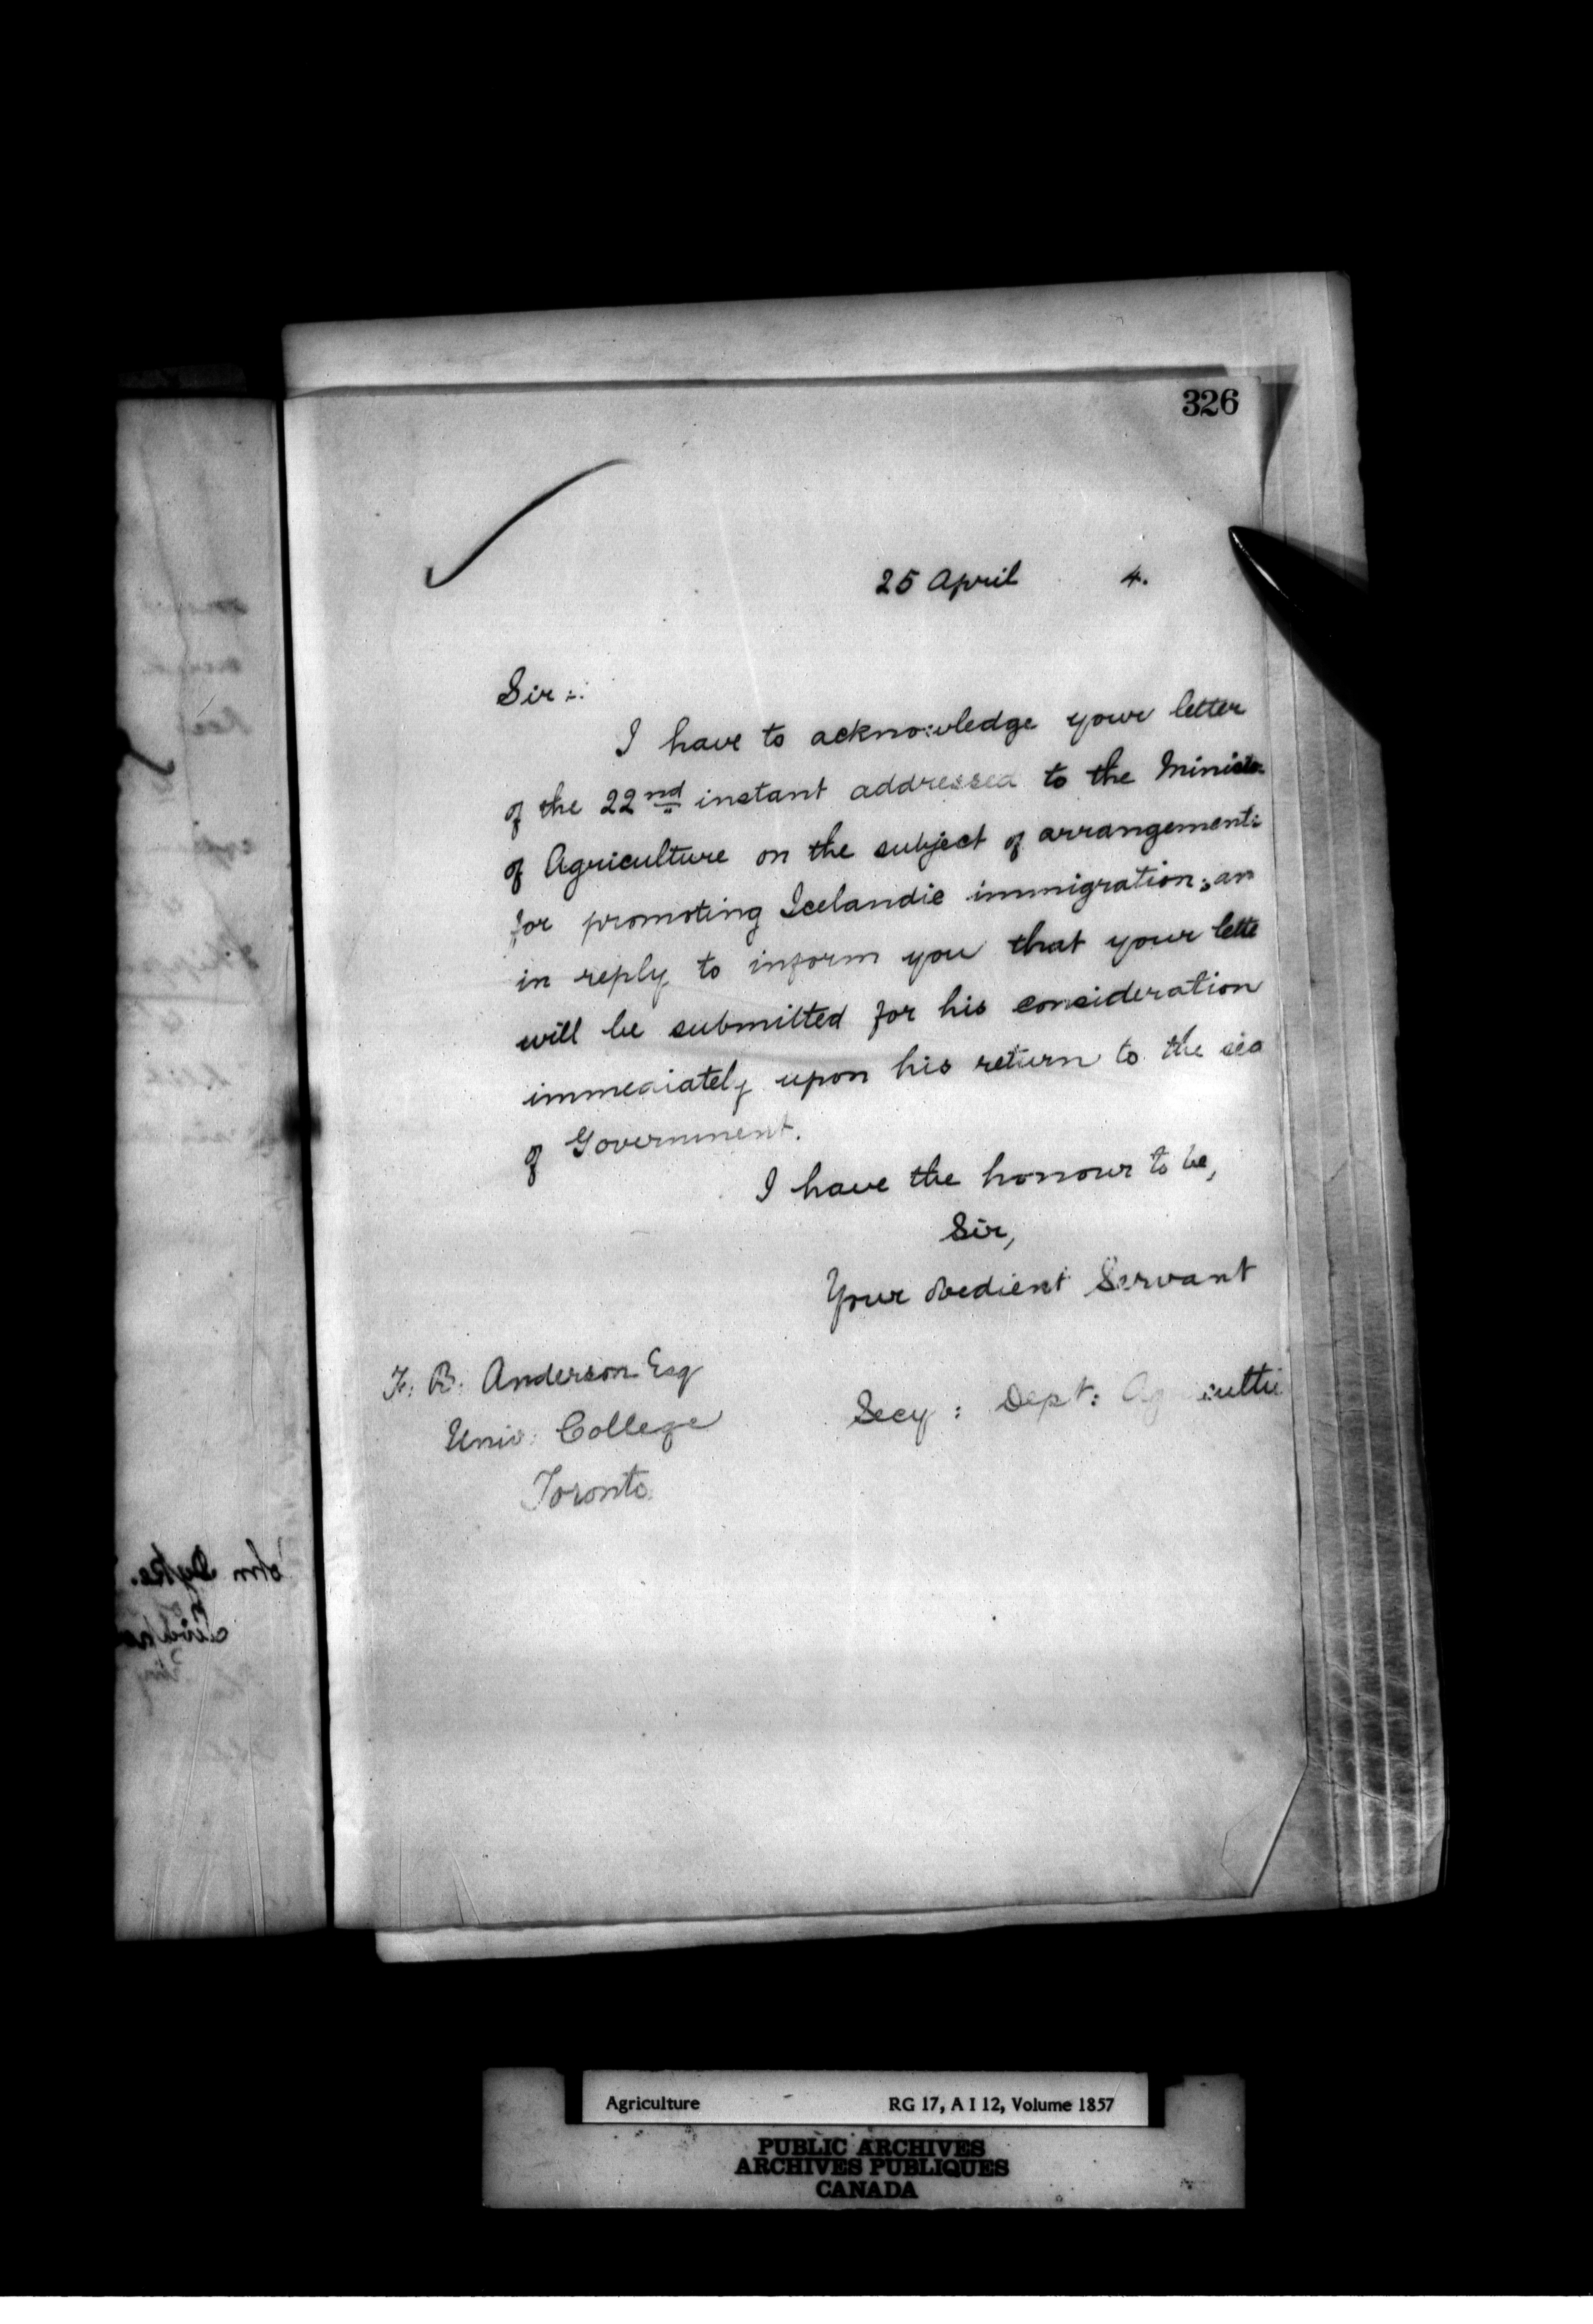 326
25 April 4.
Sir :.
I have to acknowledge your letter
of the 22nd instant addressed to the Ministe
of Agriculture on the subject of arrangements
for promoting Icelandic immigration; an
in reply to inform you that your lette
will be submitted for his consideration
immediately upon his return to the sea
of Government.
I have the honour to be,
Sir,
Your obedient Servant
F. B. Anderson Esq
Univ: College
Toronto
Secy: Dept: Agricultu
Agriculture RG 17, A I 12, Volume 1857
PUBLIC ARCHIVES
ARCHIVES PUBLIQUES
CANADA